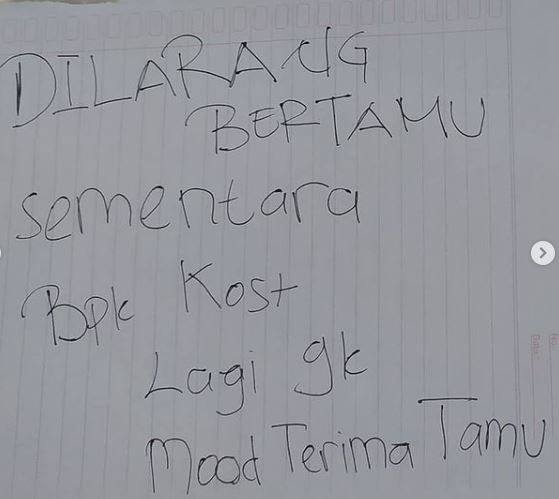 DILARANG
BERTAMU
sementara
Bpk Kost
Lagi gk
Mood Terima Tamu